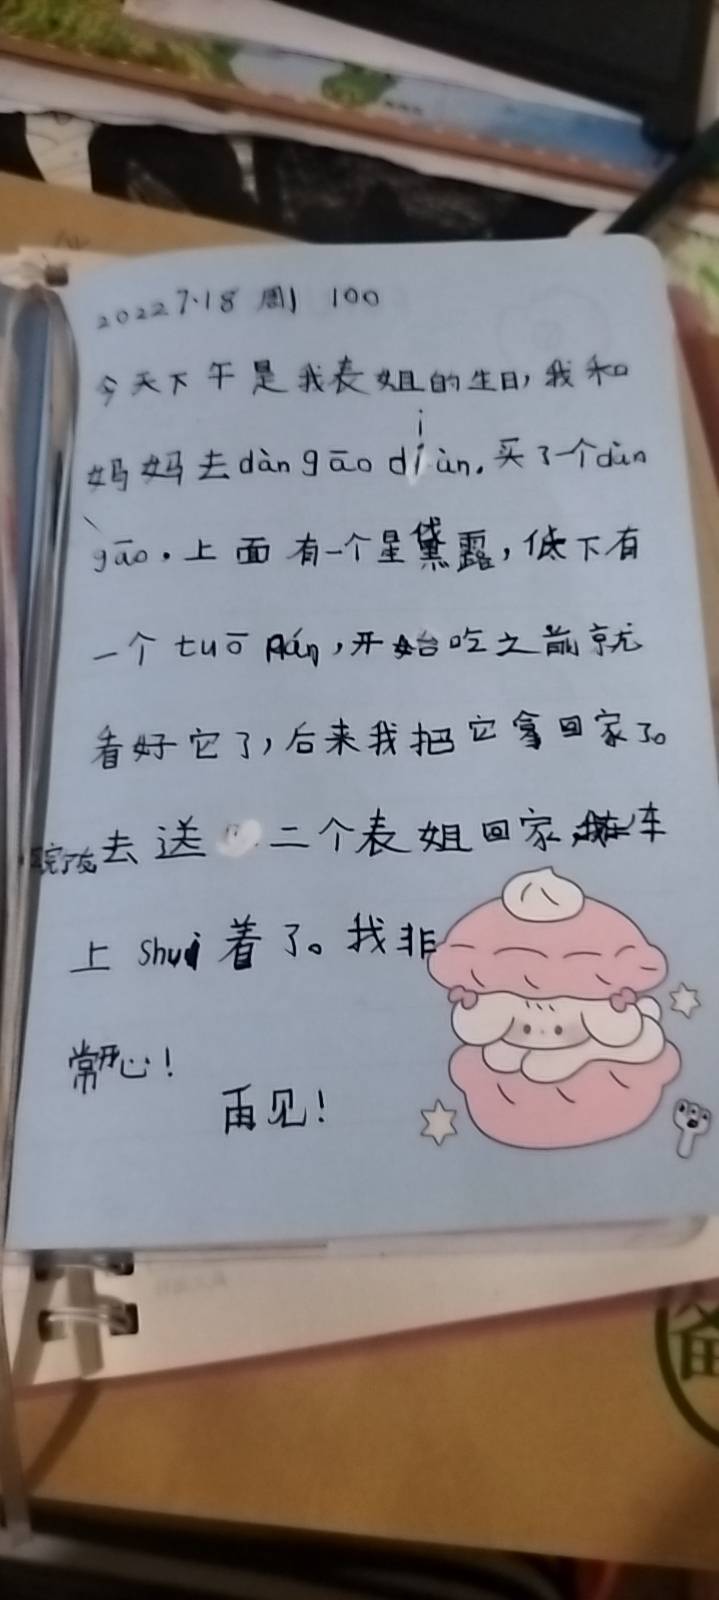 2022 7.18 周1 100
今天下午是我表姐的生日，我和
妈妈去dàn gāo diàn.买了一个dàn
gāo.上面有一个星黛露，低下有
一个tuō pán，开始吃之前就
看好它了，后来我把它拿回家了。
完了去送二个表姐回家，我在车
上shuì着了。我非
常开心！
再见！